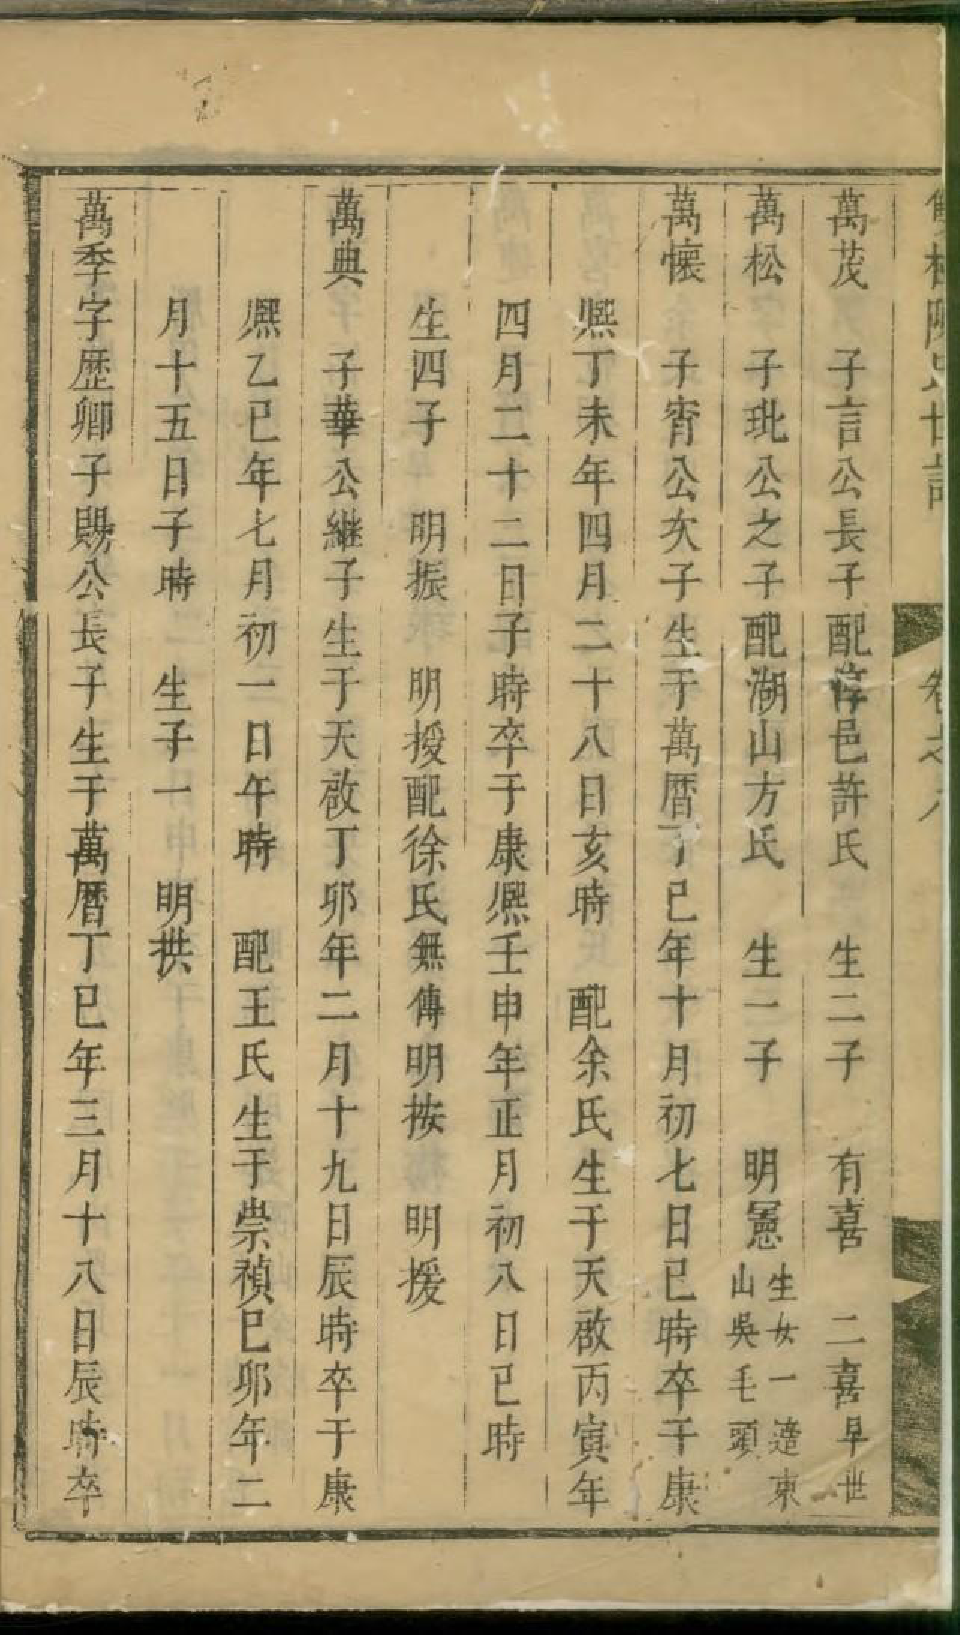 陳氏世譜
卷之八
萬茂 子言公長子配淳邑許氏 生二子 有喜 二喜早世
萬松 子玭公之子配湖山方氏 生一子 明憲 生女一造東
山吳毛頭
萬懷 子宵公次子生于萬曆丁巳年十月初七日巳時卒于康
熈丁未年四月二十八日亥時 配余氏生于天啟丙寅年
四月二十二日子時卒于康熈壬申年正月初八日巳時
生四子 明振 明授配徐氏無傳明按 明援
萬典 子華公継子生于天啟丁卯年二月十九日辰時卒于康
熈乙巳年七月初一日午時 配王氏生于崇禎己卯年二
月十五日子時 生子一 明拱
萬季字歷卿子賜公長子生于萬曆丁巳年三月十八日辰時卒